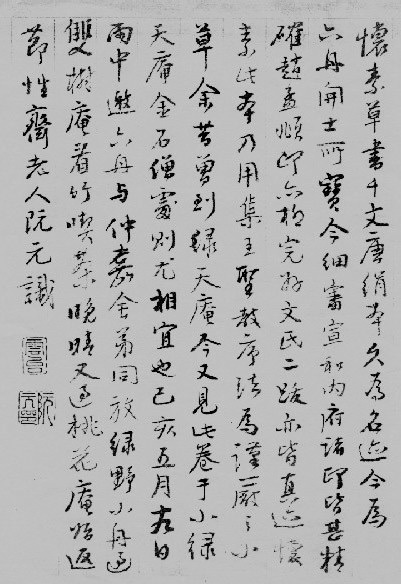 懷素草書千文唐絹本久為名迹今為
六舟開士所寶今細審宣和內府諸印皆甚精
確趙孟頫印亦極完好文氏二跋亦皆真迹懷
素此本乃用集王聖教序法為謹嚴之小
草余昔曾到綠天庵今又見此卷于小綠
天庵金石僧處則尤相宜也己亥五月六日
雨中邀六舟與仲嘉舍弟同放綠野小舟過
雙樹庵看竹喫茶晚晴又過桃花庵始返
節性齋老人阮元識